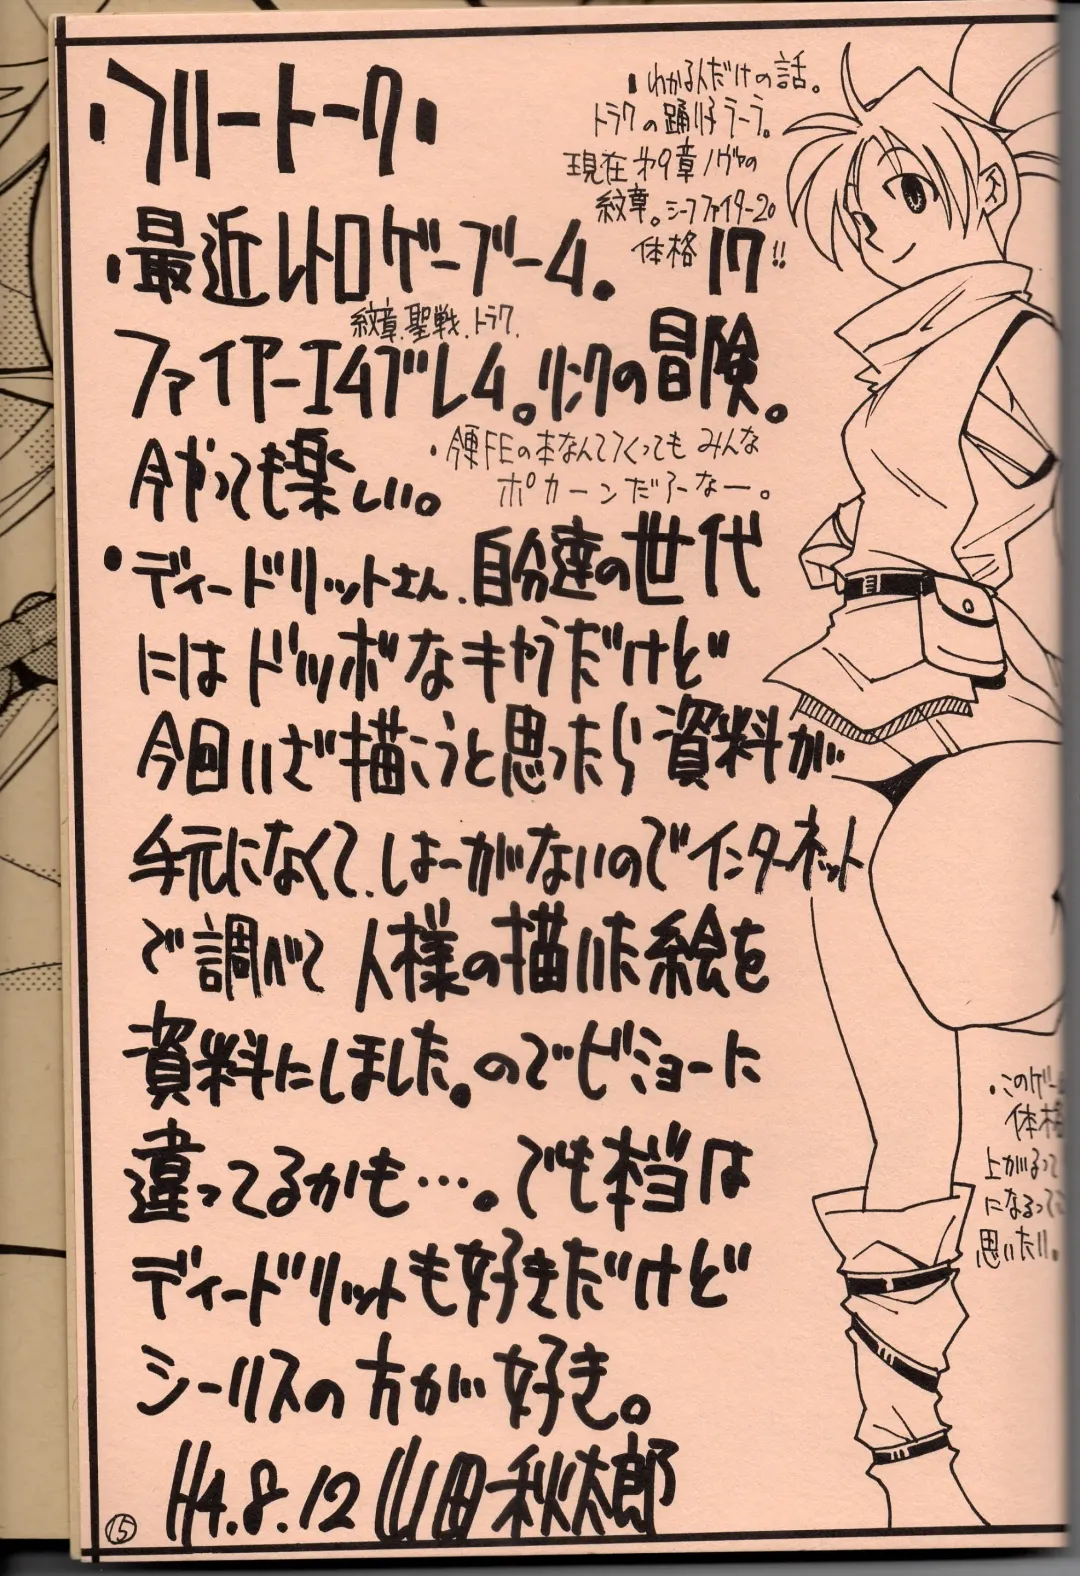 ・フリートーク・
・わかる人だけの話。
トラクの踊り子ラーラ。
現在第9章ノヴァの
紋章。シーフファイター20
体格17!!
・最近レトロゲーブーム。
紋章.聖戦.トラク.
ファイヤーエムブレム。リンクの冒険。
今やっても楽しい。
・今更FEの本なんてつくってもみんな
ポカーンだろーなー。
・ディードリットさん、自分達の世代
にはドッボなキャラだけど
今回いざ描こうと思ったら資料が
手元になくて、しょーがないのでインターネット
で調べて人様の描いた絵を
資料にしました。のでビミョーに
違ってるかも…。でも本当は
ディードリットも好きだけど
シーリスの方が好き。
H4.8.12 山田秋太郎
・このゲー
体格
上がるって
になるって
思いたい。
15